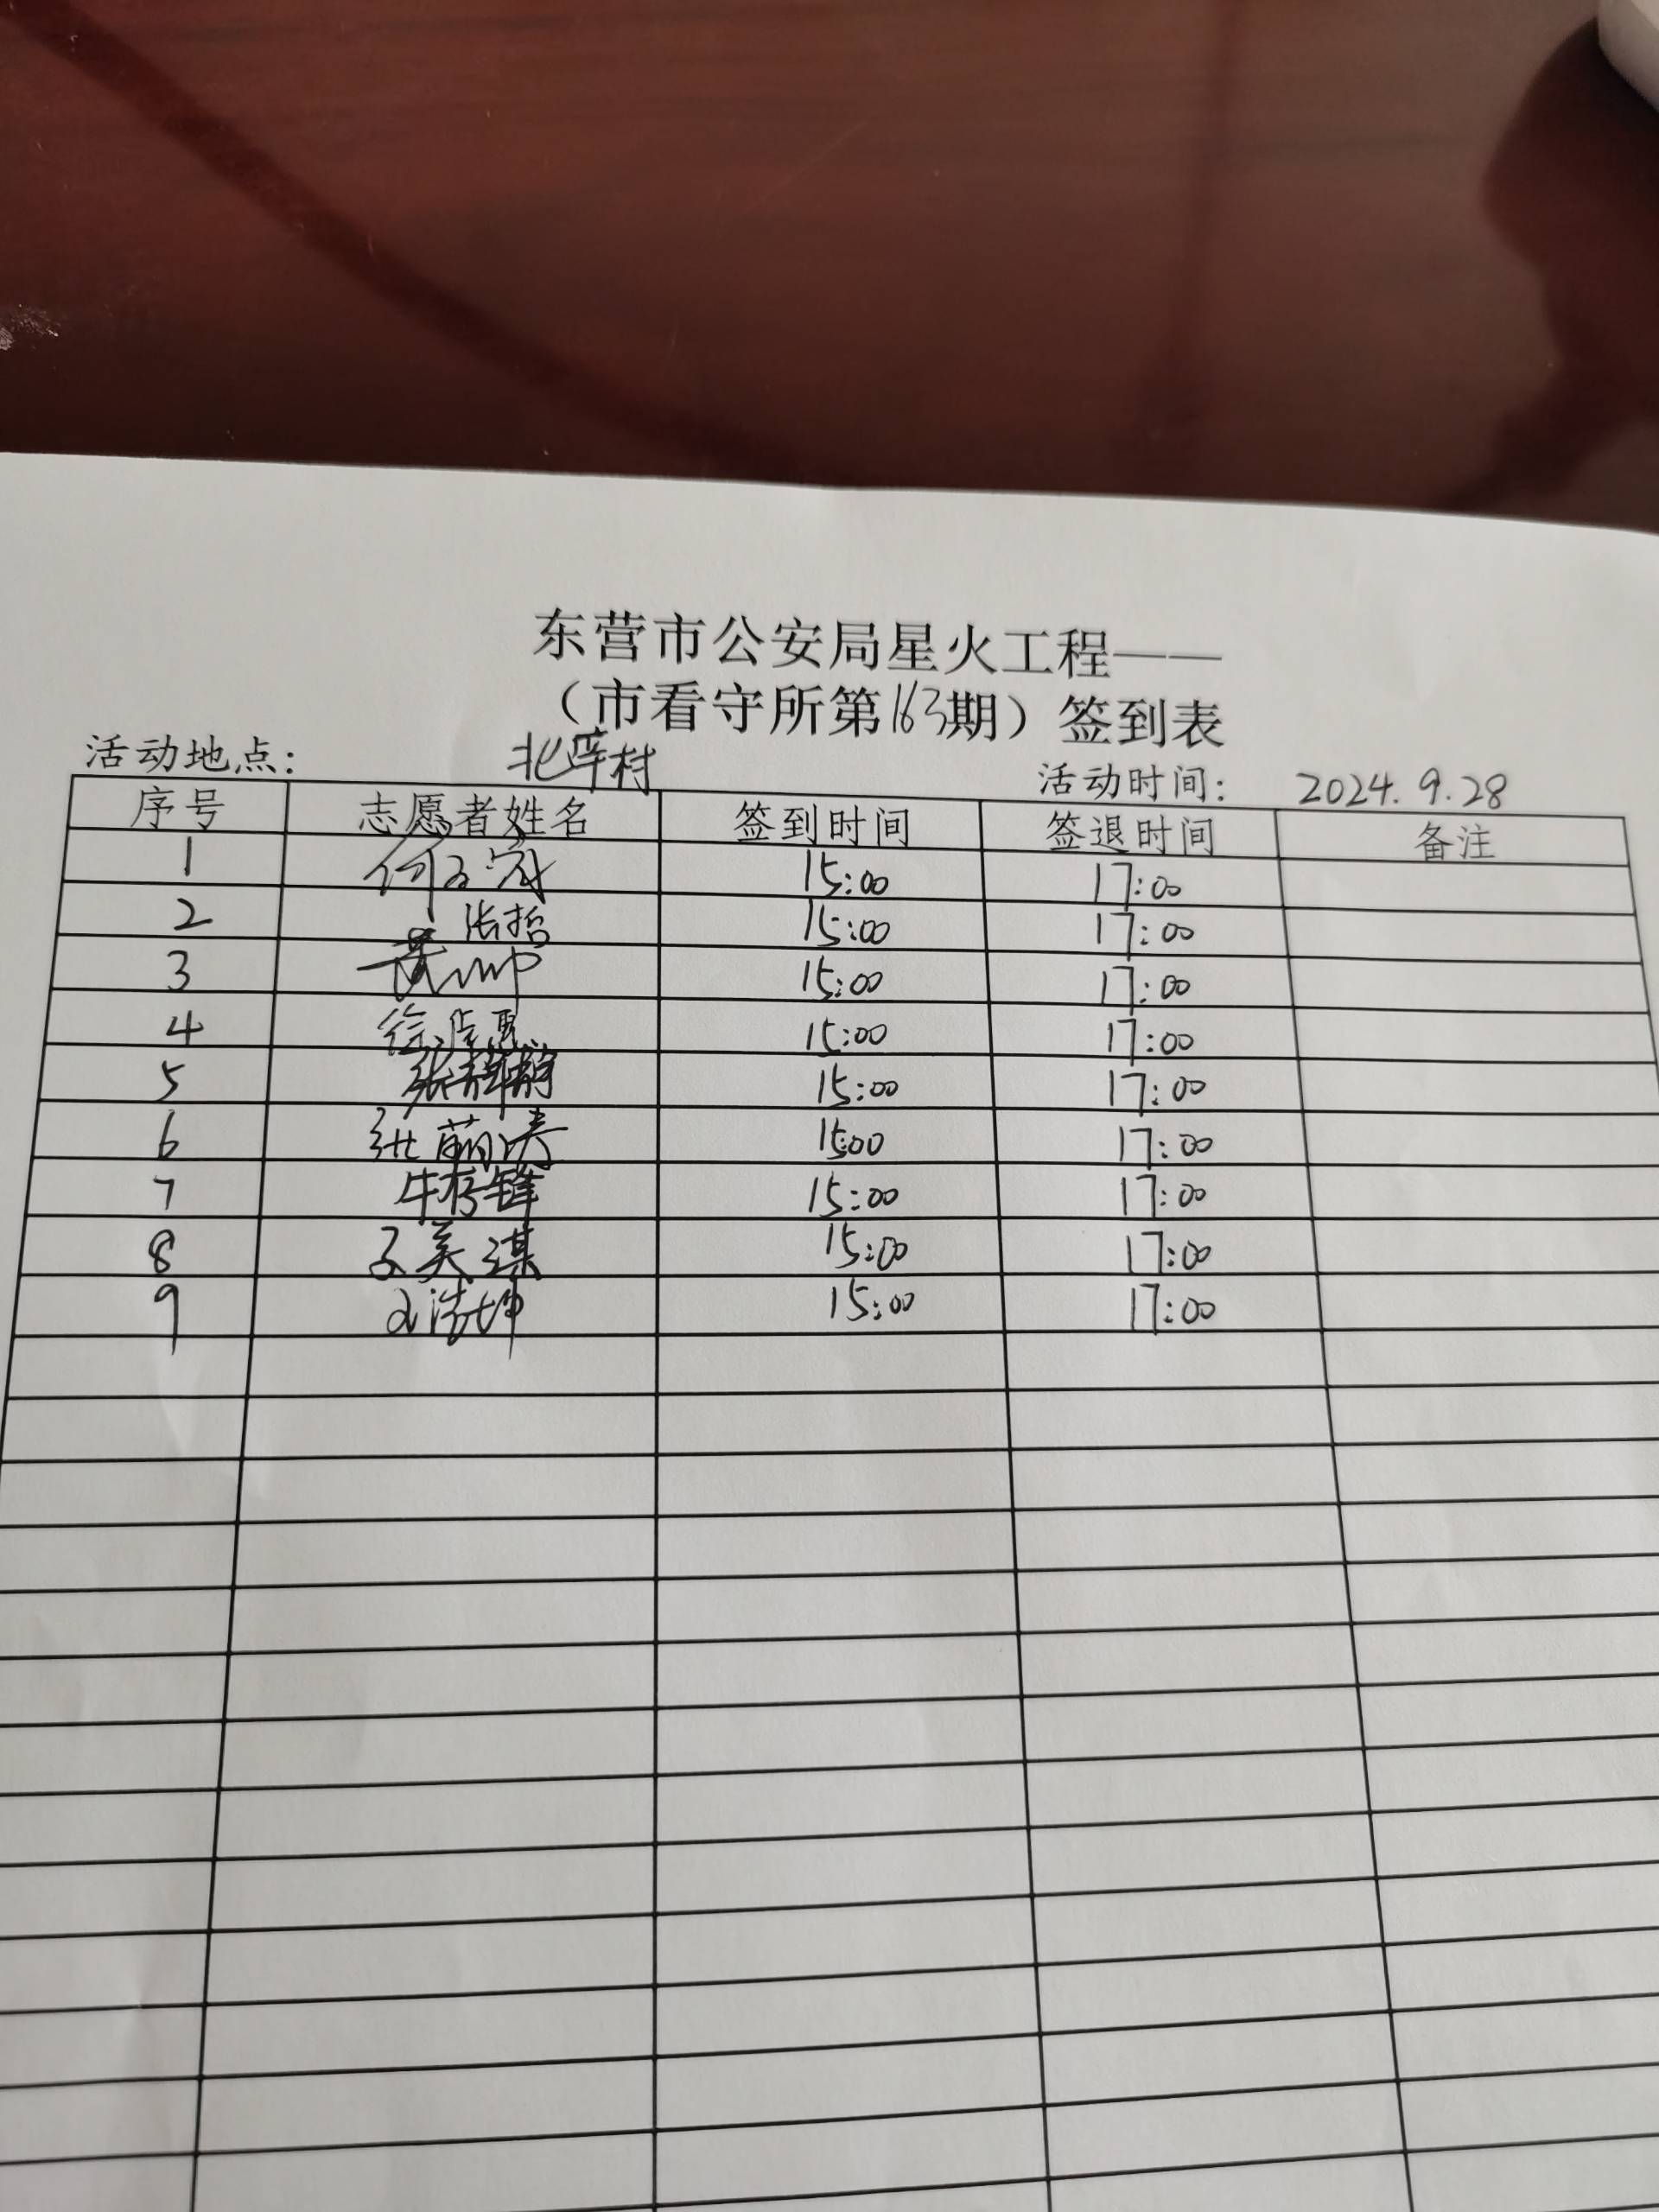 东营市公安局星火工程——
（市看守所第163期）签到表
活动地点： 北 村 活动时间： 2024.9.28
序号 志愿者姓名 签到时间 签退时间 备注
1 15:00 17:00
2 浩哲 15:00 17:00
3 黄帅 15:00 17:00
4 徐 15:00 17:00
5 张 15:00 17:00
6 张萌涛 15:00 17:00
7 牛存锋 15:00 17:00
8 美谋 15:00 17:00
9 浩坤 15:00 17:00